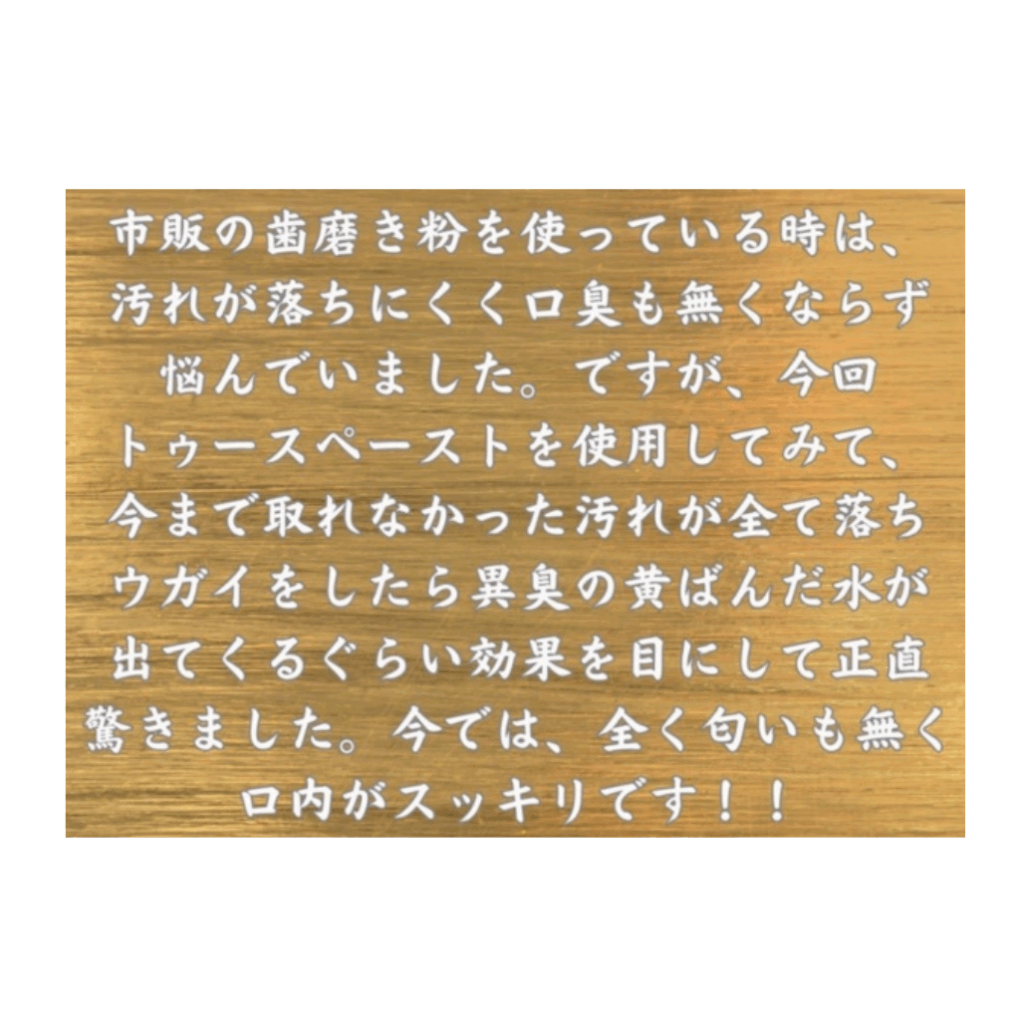 市販の歯磨き粉を使っている時は、
汚れが落ちにくく口臭も無くならず
悩んでいました。ですが、今回
トゥースペーストを使用してみて、
今まで取れなかった汚れが全て落ち
ウガイをしたら異臭の黄ばんだ水が
出てくるぐらい効果を目にして正直
驚きました。今では、全く匂いも無く
口内がスッキリです！！